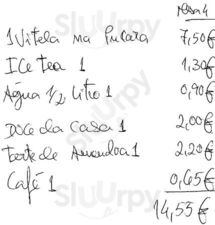 Mesa 4
1 Vitela na Pucara 7,50€
ICe tea 1 1,30€
Água 1/2 litro 1 0,90€
DOCE da CASA 1 2,00€
Tarte de Amendoa 1 2,20€
Café 1 0,65€
14,55€
Sluurpy
Sluurpy